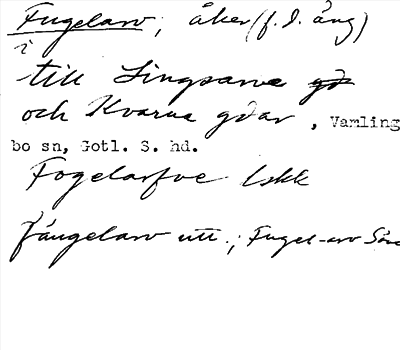 Fugelarv, åker (f. d. äng)
i
till Lingsarve
och Kvarna gdar, Vamling
bo sn, Gotl. S. hd.
Fogelarfve lskk
fäugelarv utt.; Fugel-arv